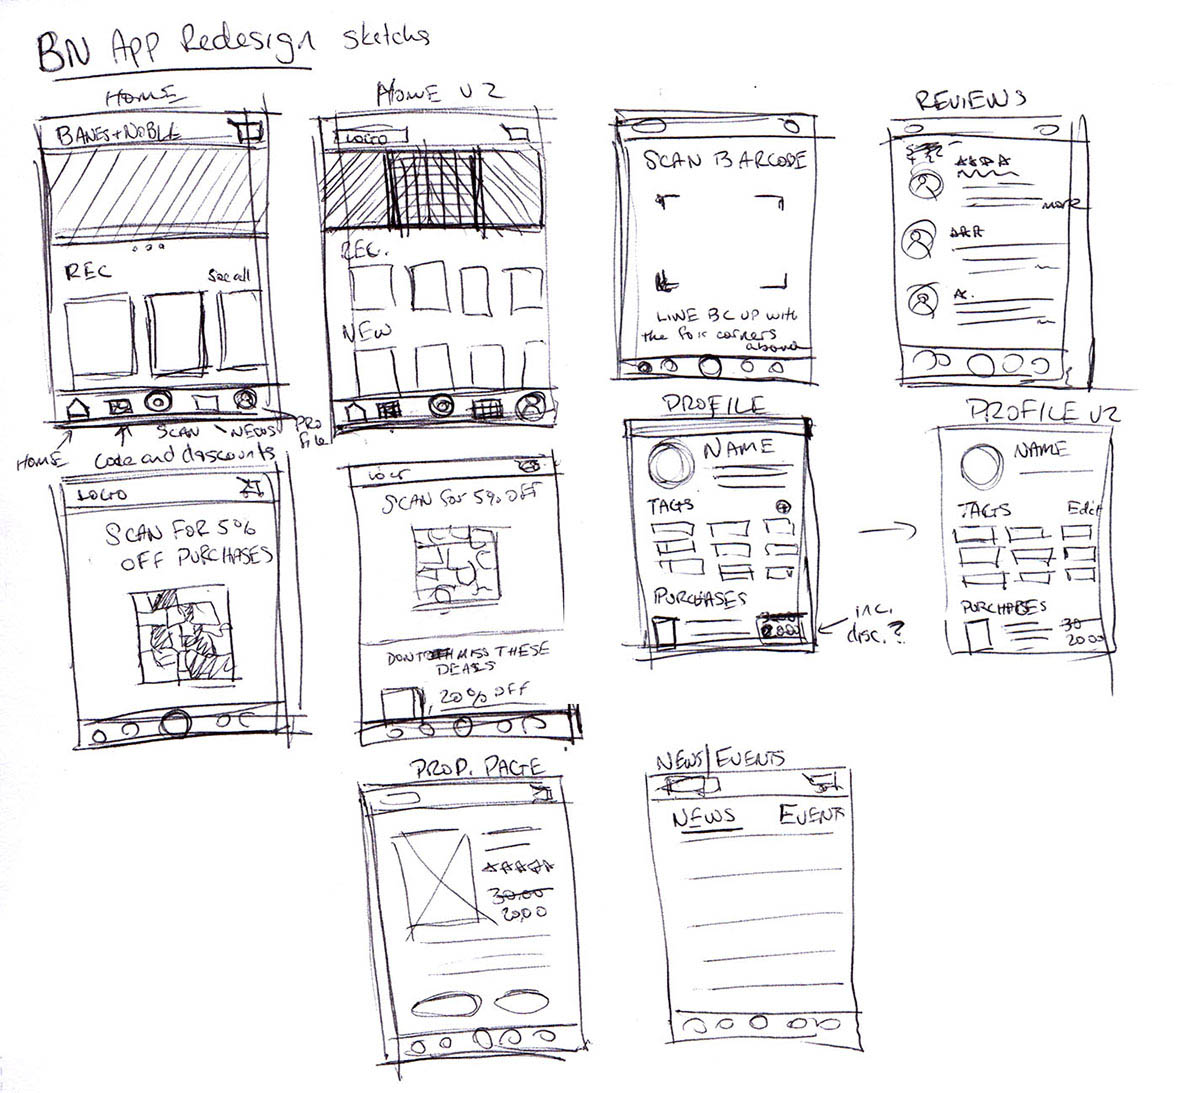 BN App Redesign Sketchs
HOME
HOME V2
REVIEWS
BANES+NOBLE
REC
See all
HOME
code and discounts
SCAN
NEWS
PRO
file
LOGO
REC.
NEW
SCAN BARCODE
LINE BC UP with
the for corners
above
more
LOGO
SCAN FOR 5%
OFF PURCHASES
SCAN FOR 5% OFF
DONT MISS THESE
DEALS
20% OFF
PROFILE
NAME
TAGS
PURCHASES
20.00
inc.
disc.?
PROFILE V2
NAME
TAGS
Edit
PURCHASES
30
20.00
PROD. PAGE
30.00
20.00
NEWS/EVENTS
NEWS
EVENTS